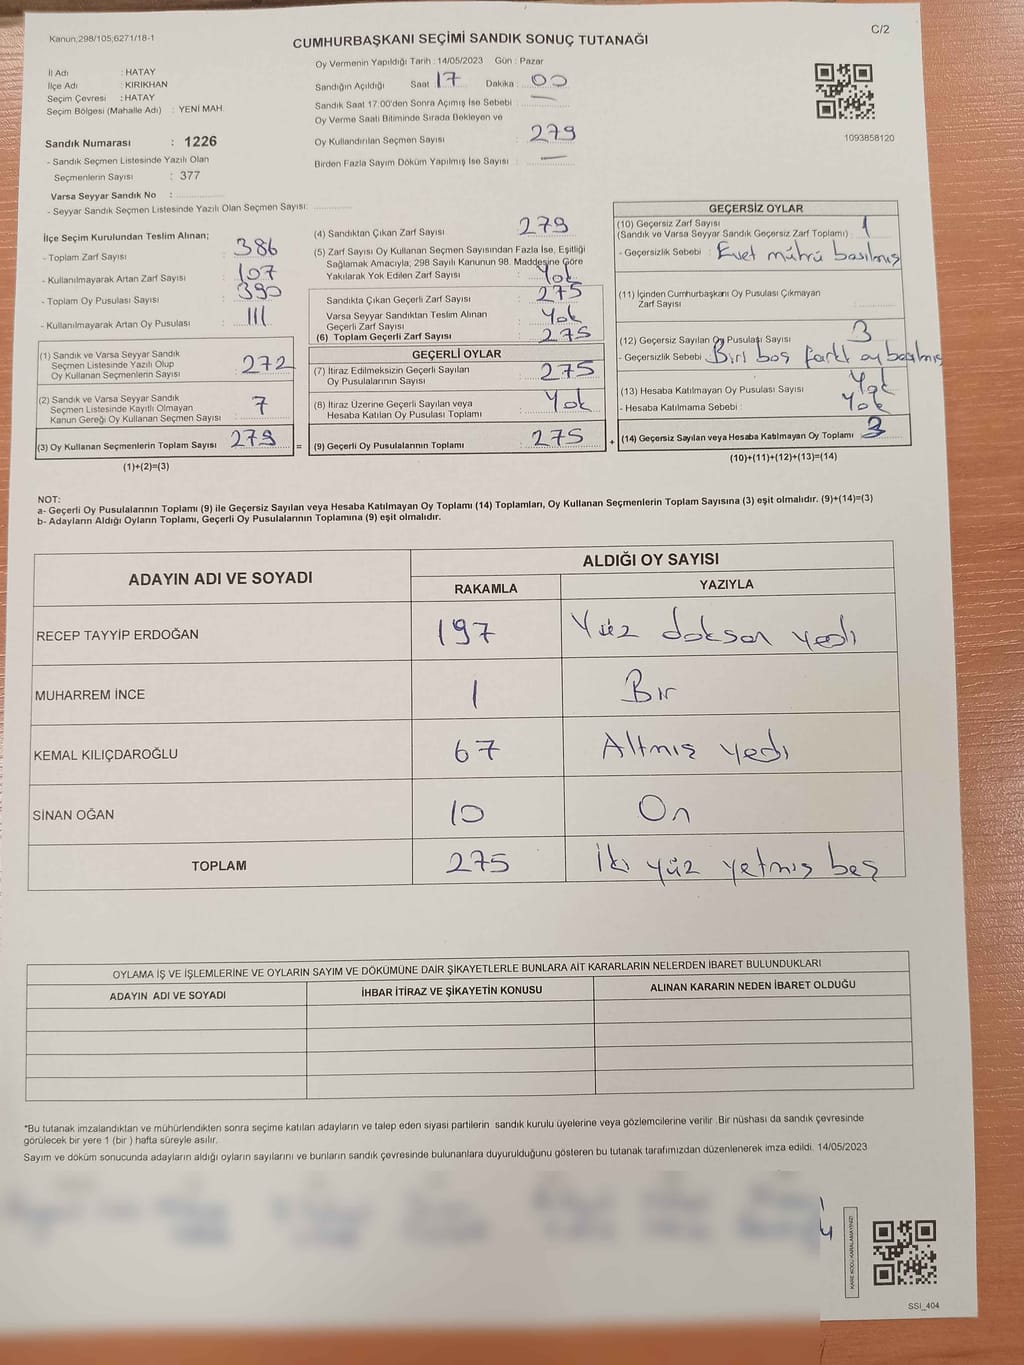 Kanun;298/105;6271/18-1
C/2
CUMHURBAŞKANI SEÇİMİ SANDIK SONUÇ TUTANAĞI
İl Adı : HATAY
İlçe Adı : KIRIKHAN
Seçim Çevresi : HATAY
Seçim Bölgesi (Mahalle Adı) : YENİ MAH.
Sandık Numarası : 1226
- Sandık Seçmen Listesinde Yazılı Olan
Seçmenlerin Sayısı : 377
Varsa Seyyar Sandık No :
- Seyyar Sandık Seçmen Listesinde Yazılı Olan Seçmen Sayısı:
Oy Vermenin Yapıldığı Tarih : 14/05/2023 Gün : Pazar
Sandığın Açıldığı Saat 17 Dakika : 00
Sandık Saat 17.00'den Sonra Açımış İse Sebebi : —
Oy Verme Saati Bitiminde Sırada Bekleyen ve
Oy Kullandırılan Seçmen Sayısı : 279
Birden Fazla Sayım Döküm Yapılmış İse Sayısı : —
1093858120
İlçe Seçim Kurulundan Teslim Alınan;
- Toplam Zarf Sayısı : 386
- Kullanılmayarak Artan Zarf Sayısı : 107
- Toplam Oy Pusulası Sayısı : 390
- Kullanılmayarak Artan Oy Pusulası : 111
(1) Sandık ve Varsa Seyyar Sandık
Seçmen Listesinde Yazılı Olup
Oy Kullanan Seçmenlerin Sayısı : 272
(2) Sandık ve Varsa Seyyar Sandık
Seçmen Listesinde Kayıtlı Olmayan
Kanun Gereği Oy Kullanan Seçmen Sayısı : 7
(3) Oy Kullanan Seçmenlerin Toplam Sayısı : 279 =
(1)+(2)=(3)
(4) Sandıktan Çıkan Zarf Sayısı : 279
(5) Zarf Sayısı Oy Kullanan Seçmen Sayısından Fazla İse, Eşitliği
Sağlamak Amacıyla; 298 Sayılı Kanunun 98. Maddesine Göre
Yakılarak Yok Edilen Zarf Sayısı : Yok
Sandıkta Çıkan Geçerli Zarf Sayısı : 275
Varsa Seyyar Sandıktan Teslim Alınan
Geçerli Zarf Sayısı : Yok
(6) Toplam Geçerli Zarf Sayısı : 275
GEÇERLİ OYLAR
(7) İtiraz Edilmeksizin Geçerli Sayılan
Oy Pusulalarının Sayısı : 275
(8) İtiraz Üzerine Geçerli Sayılan veya
Hesaba Katılan Oy Pusulası Toplamı : Yok
(9) Geçerli Oy Pusulalarının Toplamı : 275 +
GEÇERSİZ OYLAR
(10) Geçersiz Zarf Sayısı
(Sandık ve Varsa Seyyar Sandık Geçersiz Zarf Toplamı) : 1
- Geçersizlik Sebebi : Evet mührü basılmış
(11) İçinden Cumhurbaşkanı Oy Pusulası Çıkmayan
Zarf Sayısı
(12) Geçersiz Sayılan Oy Pusulası Sayısı : 3
- Geçersizlik Sebebi : Biri boş farklı oy basılmış
(13) Hesaba Katılmayan Oy Pusulası Sayısı : Yok
- Hesaba Katılmama Sebebi : Yok
(14) Geçersiz Sayılan veya Hesaba Katılmayan Oy Toplamı : 3
(10)+(11)+(12)+(13)=(14)
NOT:
a- Geçerli Oy Pusulalarının Toplamı (9) ile Geçersiz Sayılan veya Hesaba Katılmayan Oy Toplamı (14) Toplamları, Oy Kullanan Seçmenlerin Toplam Sayısına (3) eşit olmalıdır. (9)+(14)=(3)
b- Adayların Aldığı Oyların Toplamı, Geçerli Oy Pusulalarının Toplamına (9) eşit olmalıdır.
ADAYIN ADI VE SOYADI ALDIĞI OY SAYISI
RAKAMLA YAZIYLA
RECEP TAYYİP ERDOĞAN 197 Yüz doksan yedi
MUHARREM İNCE 1 Bir
KEMAL KILIÇDAROĞLU 67 Altmış yedi
SİNAN OĞAN 10 On
TOPLAM 275 İki yüz yetmiş beş
OYLAMA İŞ VE İŞLEMLERİNE VE OYLARIN SAYIM VE DÖKÜMÜNE DAİR ŞİKAYETLERLE BUNLARA AİT KARARLARIN NELERDEN İBARET BULUNDUKLARI
ADAYIN ADI VE SOYADI İHBAR İTİRAZ VE ŞİKAYETİN KONUSU ALINAN KARARIN NEDEN İBARET OLDUĞU
*Bu tutanak imzalandıktan ve mühürlendikten sonra seçime katılan adayların ve talep eden siyasi partilerin sandık kurulu üyelerine veya gözlemcilerine verilir .Bir nüshası da sandık çevresinde
görülecek bir yere 1 (bir ) hafta süreyle asılır.
Sayım ve döküm sonucunda adayların aldığı oyların sayılarını ve bunların sandık çevresinde bulunanlara duyurulduğunu gösteren bu tutanak tarafımızdan düzenlenerek imza edildi. 14/05/2023
KARE KODU KARALAMAYINIZ!
SSI_404